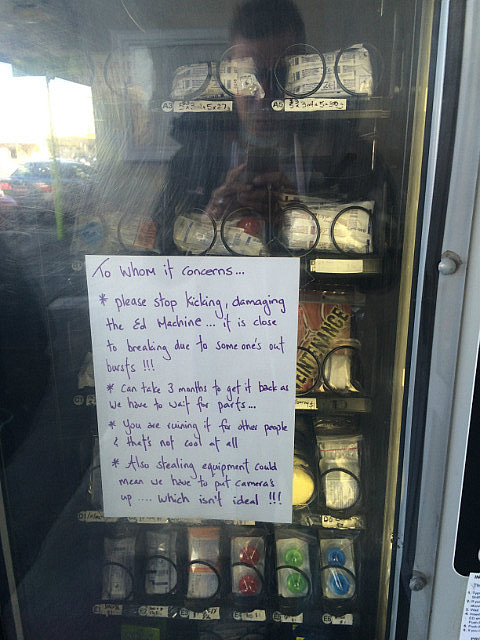 A3
A5
To whom it concerns...
* please stop kicking, damaging
the Ed Machine... it is close
to breaking due to someone's out
bursts !!!
* Can take 3 months to get it back as
we have to wait for parts...
* You are ruining it for other people
& that's not cool at all
* Also stealing equipment could
mean we have to put camera's
up .... which isn't ideal !!!